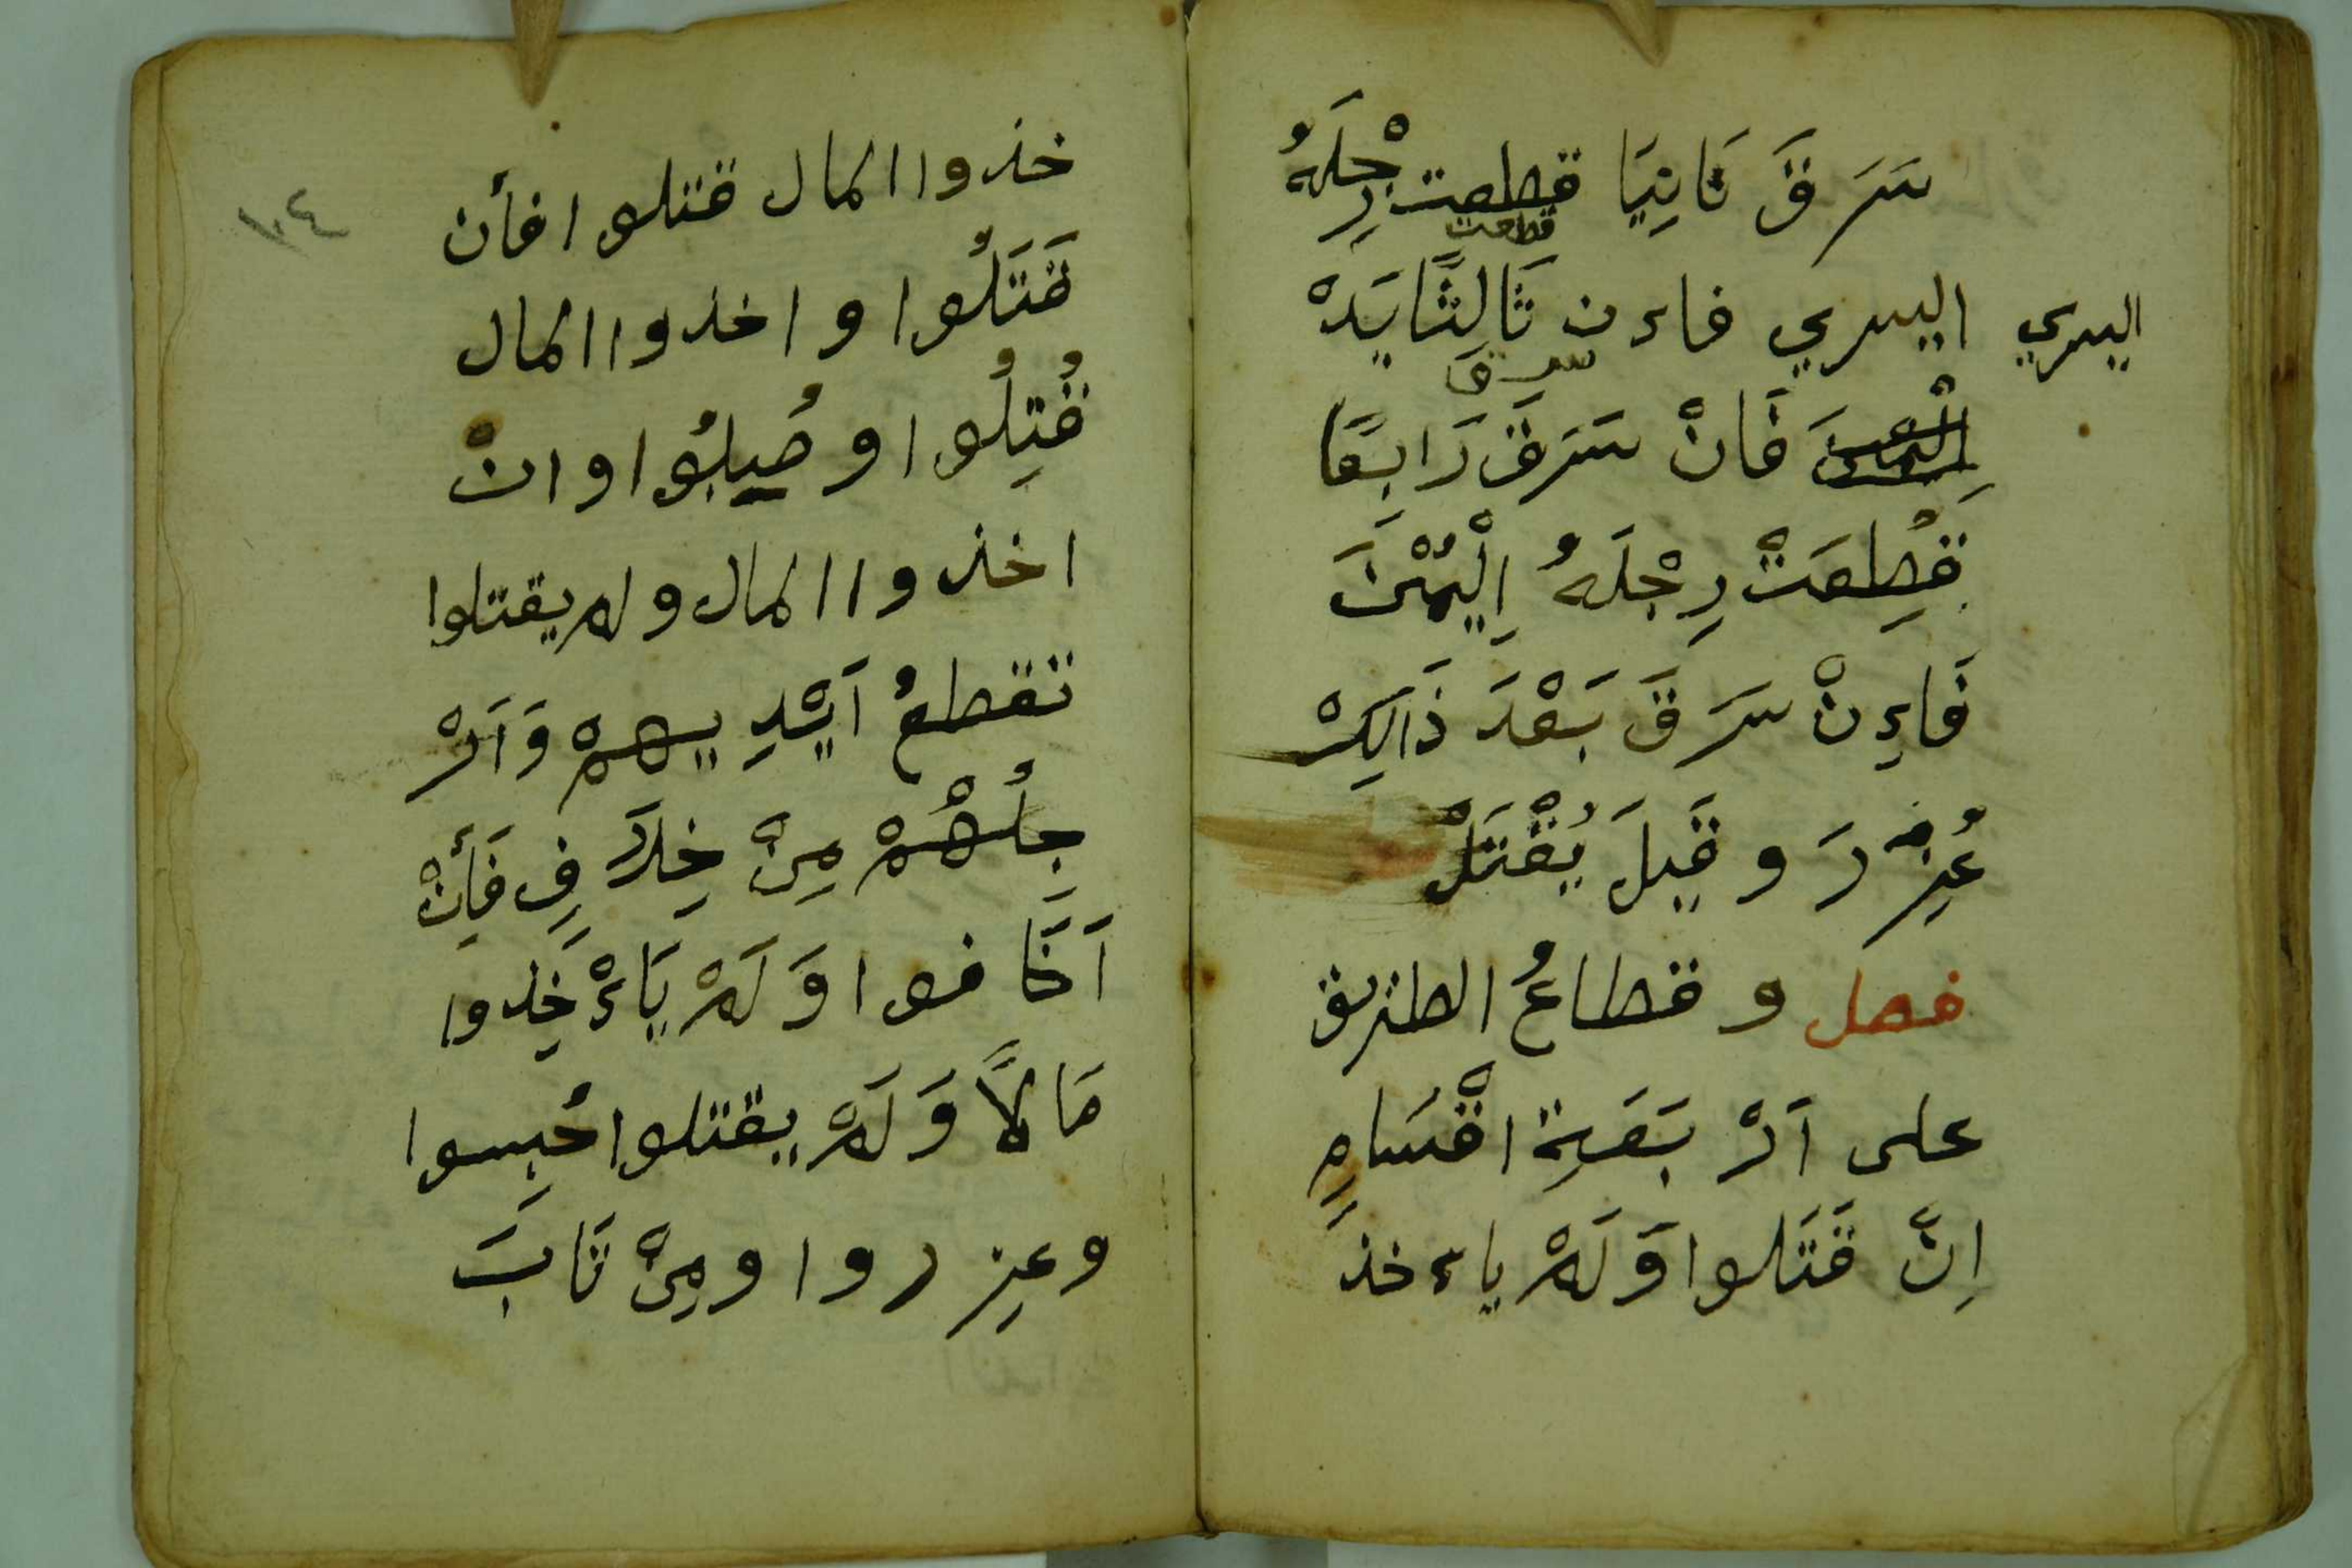 سَرَقَ ثَانِيَا قطعت رِجْلَهُ
قطعت
اليسري فاءن ثَالِثًا يَدهْ
اليسري
سرق
فَانْ سَرَقَ رَابِعًا
قُطِعَتْ رِجْلَهُ اِلْيُمْنَى
فَاءِنْ سَرَقَ بَعْدَ ذَالِكْ
عُزِّرَ و قَيِلَ يُقْتَلْ
فصل و قطاعُ الطريق
على اَرْبَعَةِ اقْسَامٍ
اِنَّ قَتَلوا وَلَمْ ياءخذَ
خذوا المال قتلوا فأن
قَتَلُوا و اخذوا المال
قُتِلُوا و صُيلبُوا و انْ
اخذوا المال ولم يقتلوا
تقطعُ اَيْدِيهمْ وَاَرْ
جِلُهُمْ مِنْ خِلَافِ فَأِنْ
اَخَافوا وَلَمْ يَاءْخِدوا
مَالًا وَلَمْ يقتلوا حُبِسوا
وعزروا ومِنْ تَابَ
١٠٤